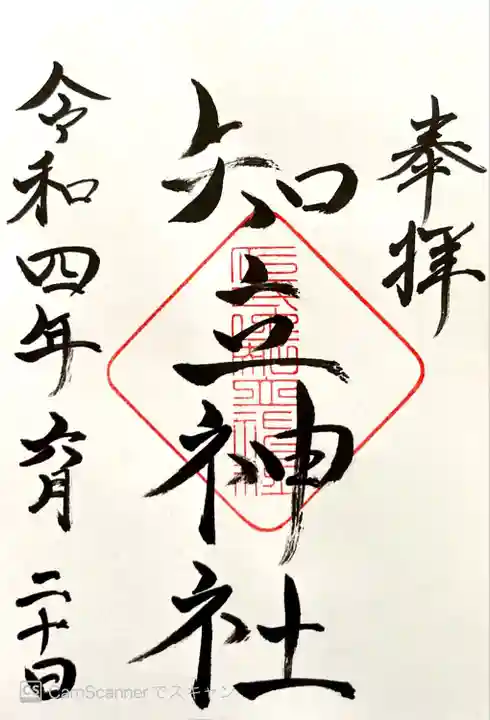 奉拝
知立神社
令和四年六月二十日
CS CamScanner でスキャン